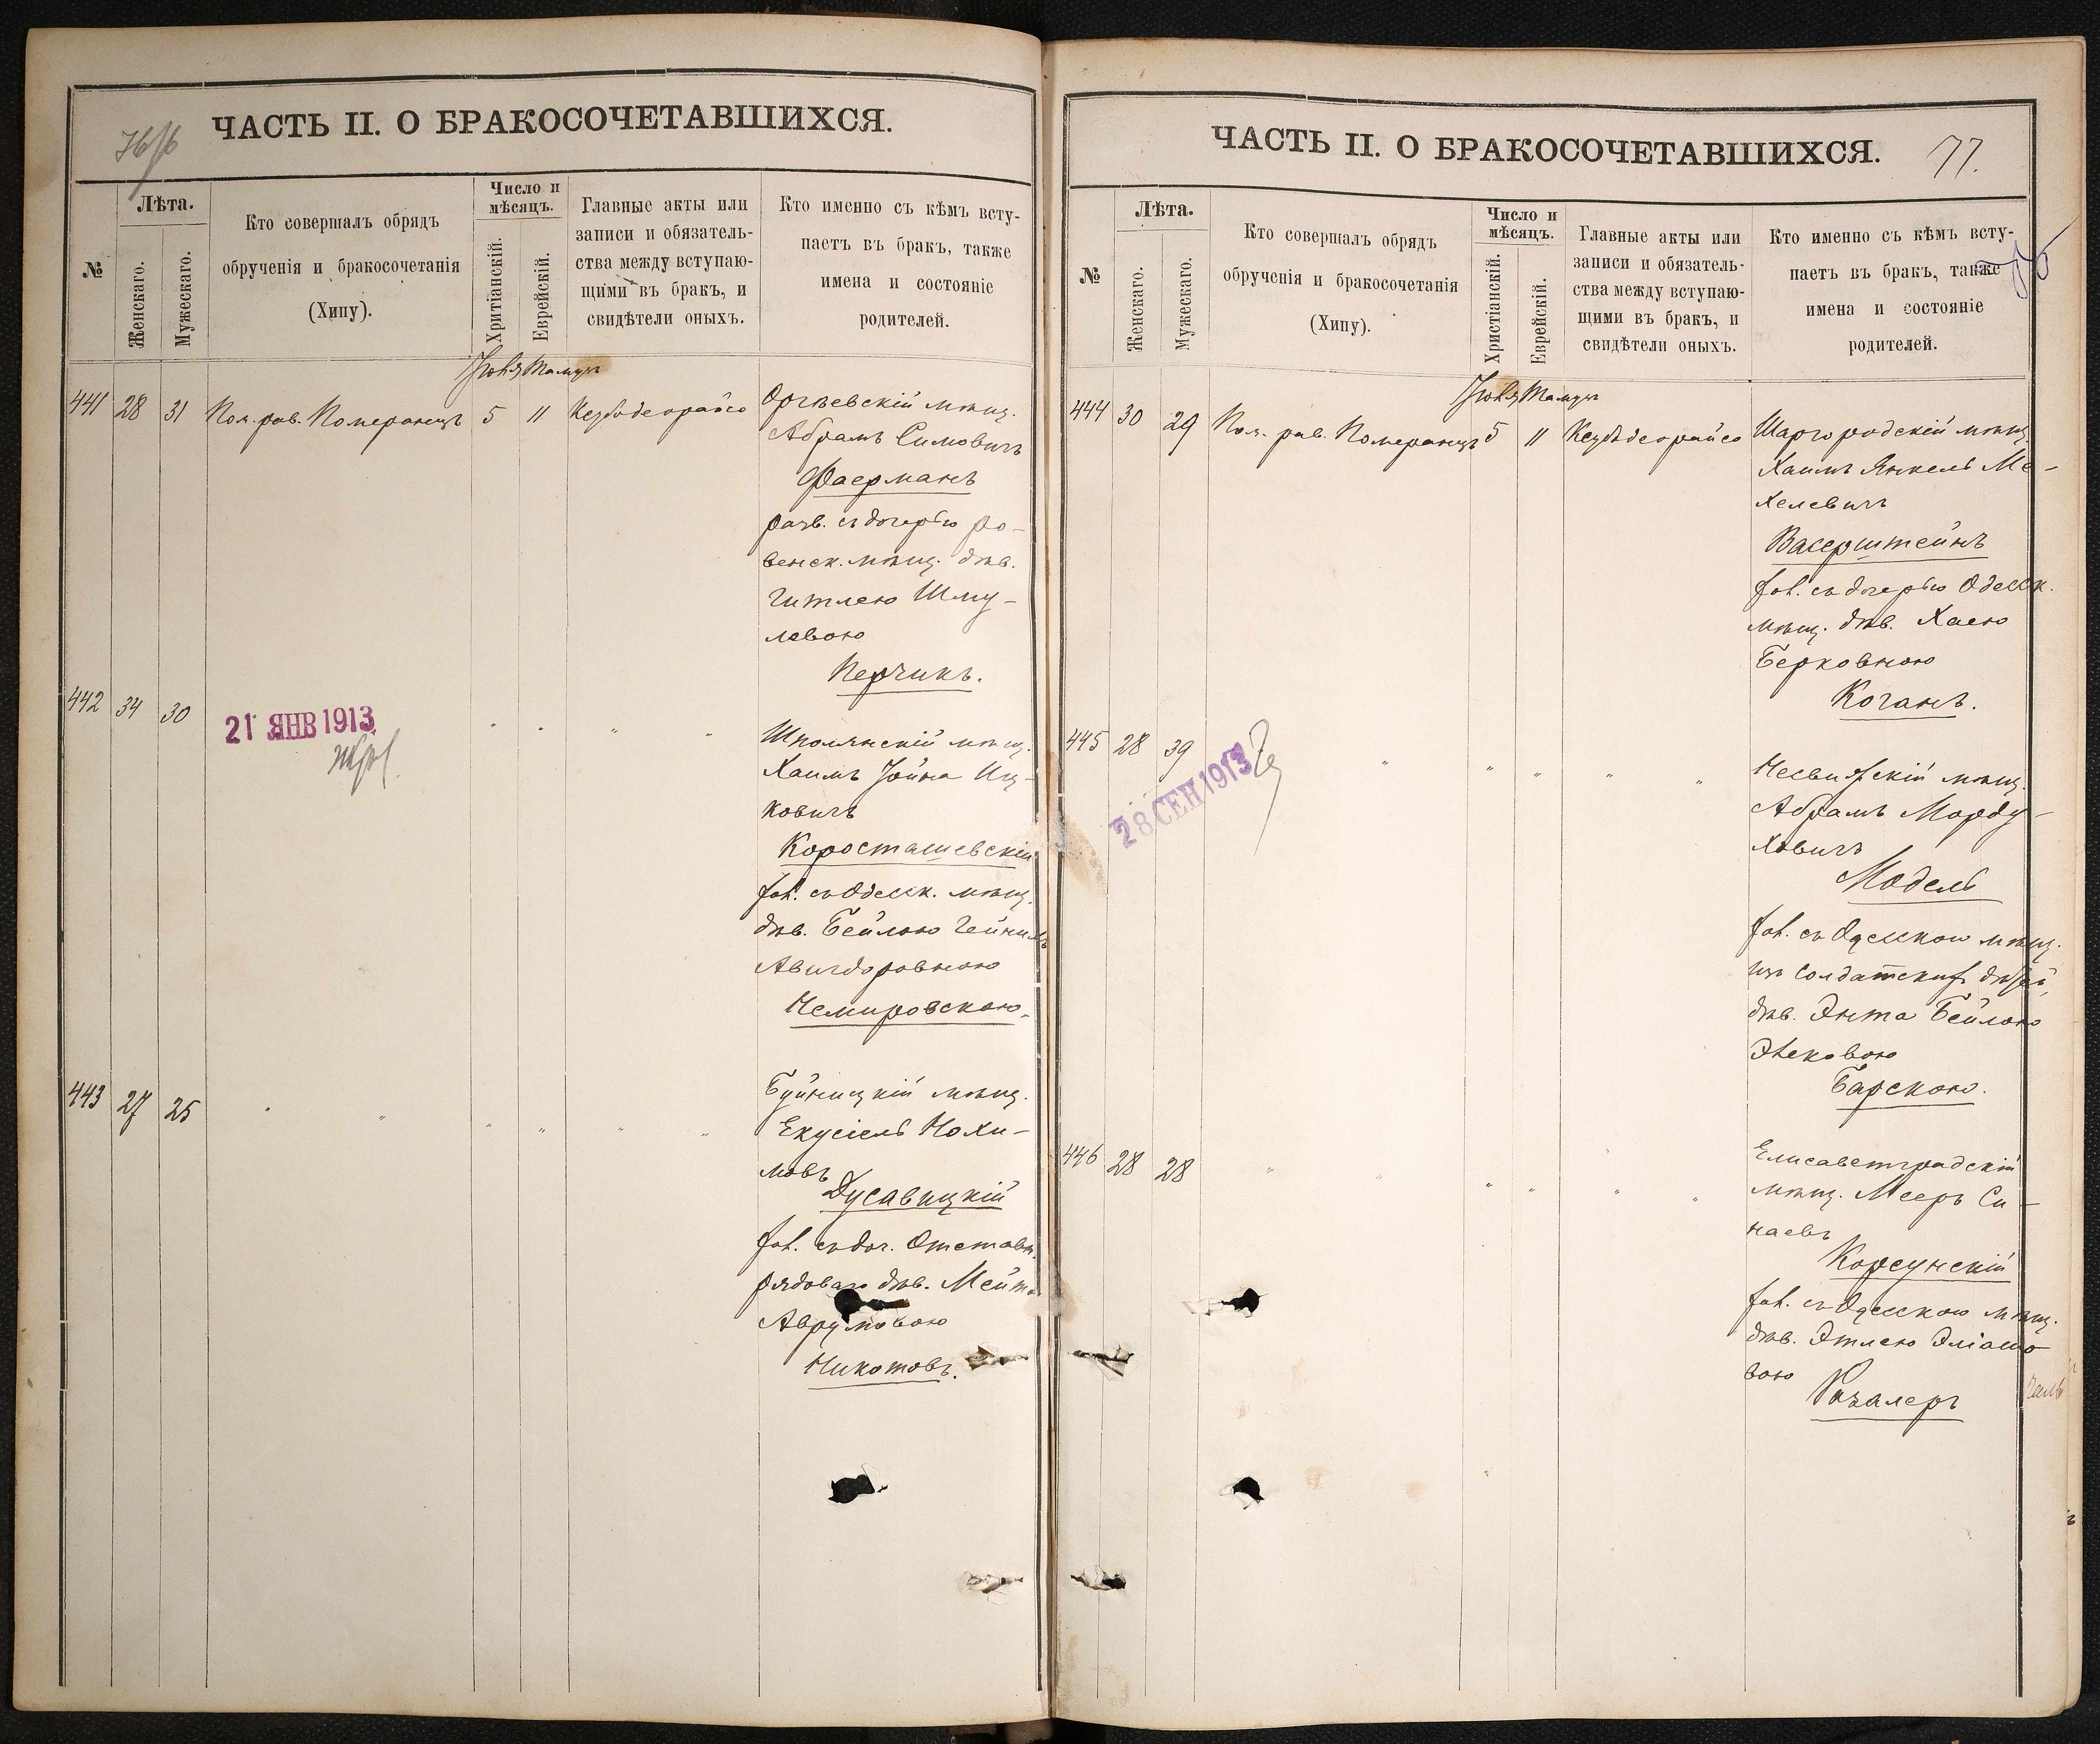 ЧАСТЬ II. О БРАКОСОЧЕТАВШИХСЯ.
№
Лѣта.
Женскаго.
Мужескаго.
Кто совершалъ обрядъ
обрученія и бракосочетанія
(Хипу).
Число и
мѣсяцъ.
Хритіанскій.
Еврейскій.
Главные акты или
записи и обязатель-
ства между вступаю-
щими въ бракъ, и
свидѣтели оныхъ.
Кто именно съ кѣмъ всту-
паетъ въ бракъ, также
имена и состояніе
родителей.
Іюля Тамузъ
441 28 31 Пом. рав. Померанецъ 5 11
Оргѣевскій мѣщ.
Абрамъ Симовичъ
Фаерманъ
разв. съ дочерью ро-
венск. мѣщ. дѣв.
Гитлею Шму-
левою
Перчикъ.
442 34 30 " " " "
21 ЯНВ 1913
Шполянскій мѣщ.
Хаимъ Іойна Иц-
ковичъ
Коросташевскій
хол. съ Одесск. мѣщ.
дѣв. Бейлою
Авигдоровною
Немировскою.
443 27 25 " " " " " "
Буйницкій мѣщ.
Екусіель Нохи-
мовъ
Дусавицкій
хол. съ доч. Отставн.
рядоваго дѣв.
Аврумовою
Никотовъ.
ЧАСТЬ II. О БРАКОСОЧЕТАВШИХСЯ.
77.
№
Лѣта.
Женскаго.
Мужескаго.
Кто совершалъ обрядъ
обрученія и бракосочетанія
(Хипу).
Число и
мѣсяцъ.
Христіанскій.
Еврейскій.
Главные акты или
записи и обязатель-
ства между вступаю-
щими въ бракъ, и
свидѣтели оныхъ.
Кто именно съ кѣмъ всту-
паетъ въ бракъ, также
имена и состояніе
родителей.
Іюля Тамузъ
444 30 29 Пом. рав. Померанецъ 5 11
Шаргородскій мѣщ.
Хаимъ Янкель Ме-
хелевичъ
Васерштейнъ
хол. съ дочерью Одесск.
мѣщ. дѣв. Хаею
Берковною
Коганъ.
445 28 39 " " " " "
28 СЕН 1913
Несвижскій мѣщ.
Абрамъ Морду-
ховичъ
Модель
хол. съ Одесскою мѣщ.
изъ солдатских дѣтей,
дѣв. Энта Бейлою
Барскою.
446 28 28 " " " " " "
Елисаветградскій
мѣщ. Мееръ Си-
наевъ
Корсунскій
хол. съ Одесскою мѣщ.
дѣв. Этлею Эліашо
вою